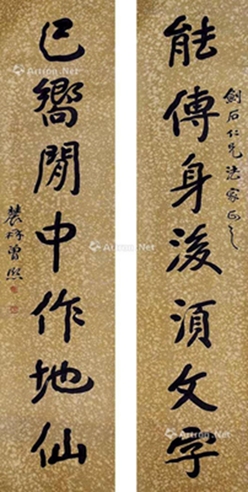 劍石仁兄法家正之
能傳身後湏文字
已嚮閒中作地仙
農髯曾熙
Artron.Net